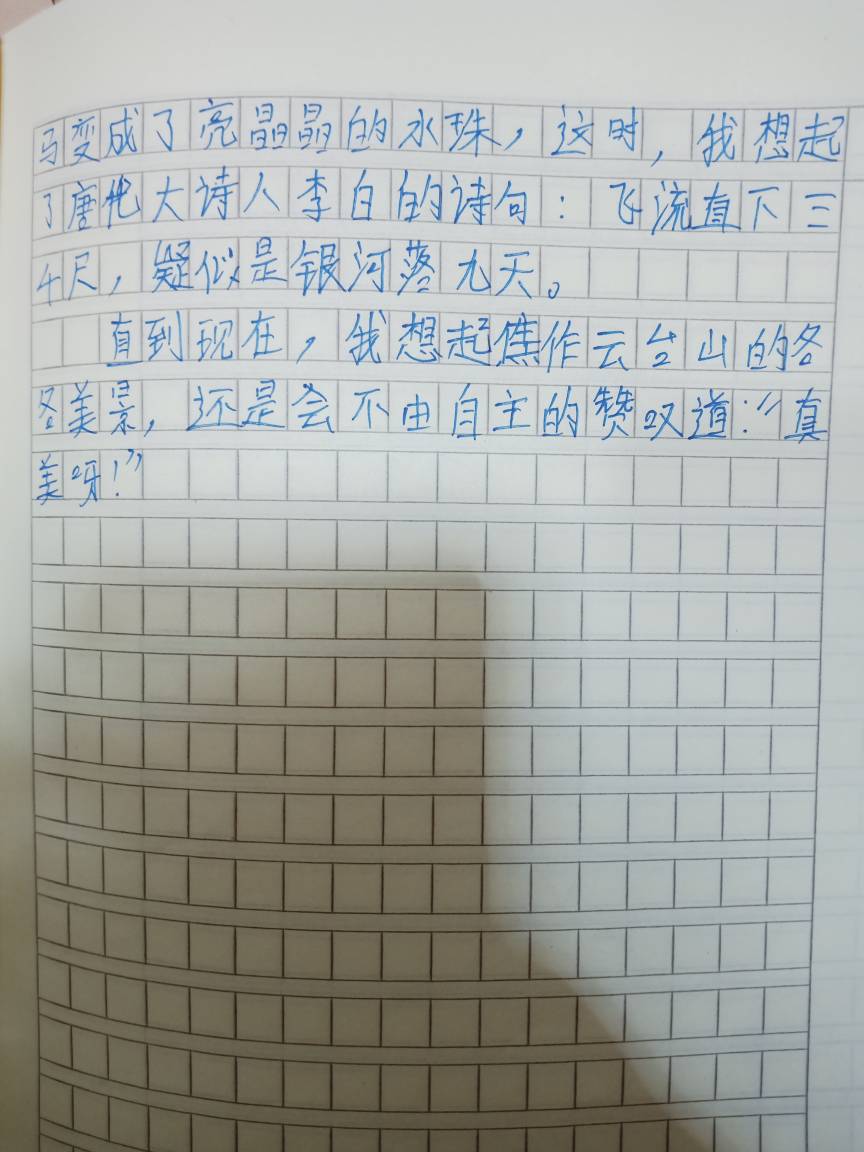 马变成了亮晶晶的水珠，这时，我想起
了唐代大诗人李白的诗句：飞流直下三
千尺，疑似是银河落九天。
直到现在，我想起焦作云台山的各
各美景，还是会不由自主的赞叹道：“真
美呀！”